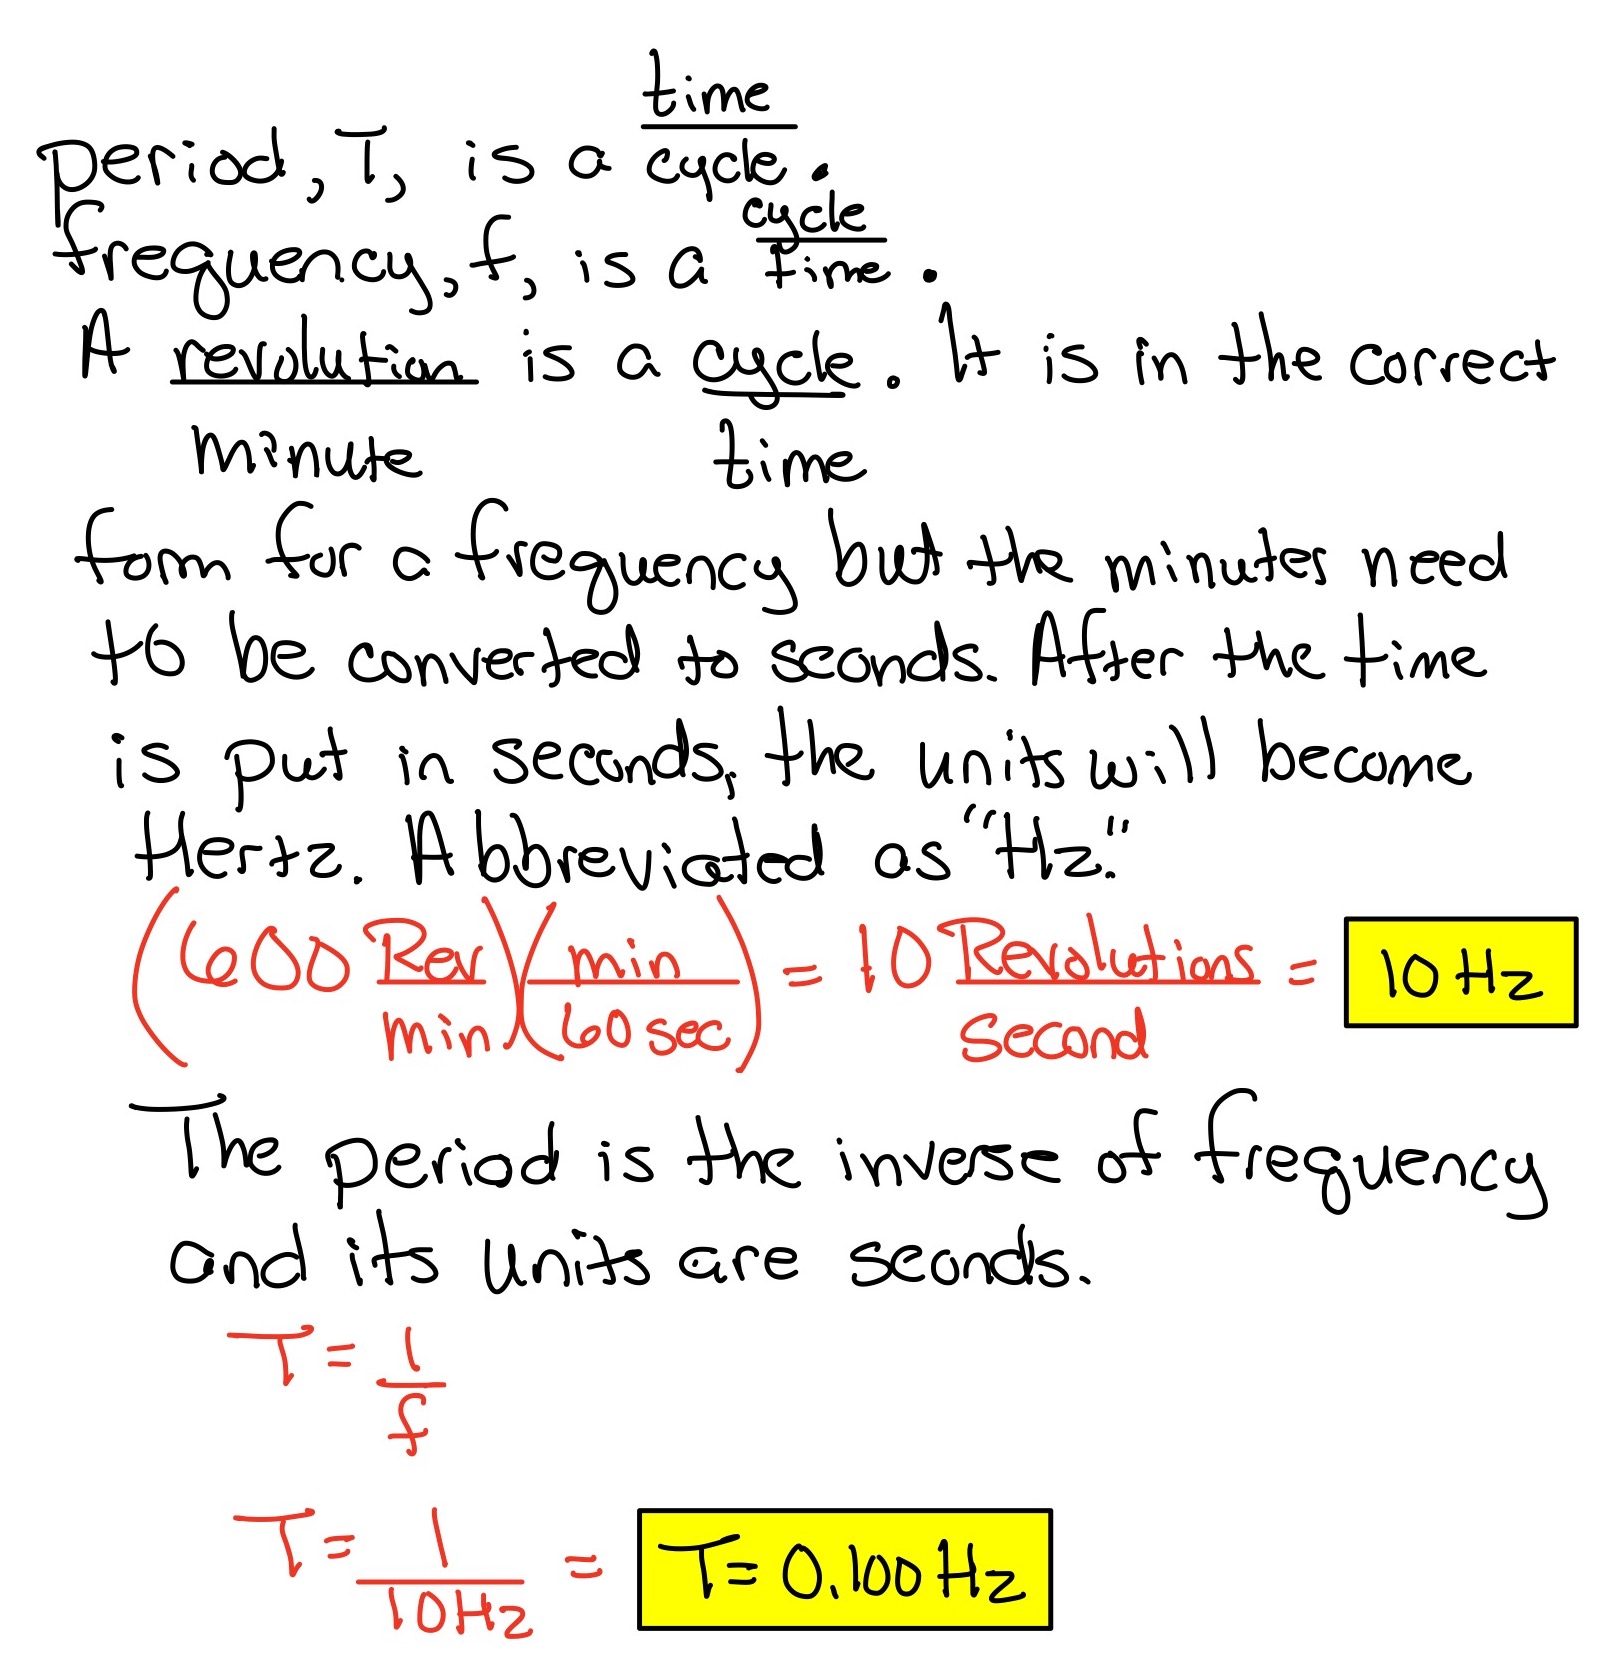 period, T, is a time/cycle.
frequency, f, is a cycle/time.
A revolution/minute is a cycle/time. It is in the correct
form for a frequency but the minutes need
to be converted to seconds. After the time
is put in seconds, the units will become
Hertz. Abbreviated as "Hz."
(600 Rev/min)(min/60 sec) = 10 Revolutions/Second = 10 Hz
The period is the inverse of frequency
and its units are seconds.
T = 1/f
T = 1/10Hz = T = 0.100 Hz